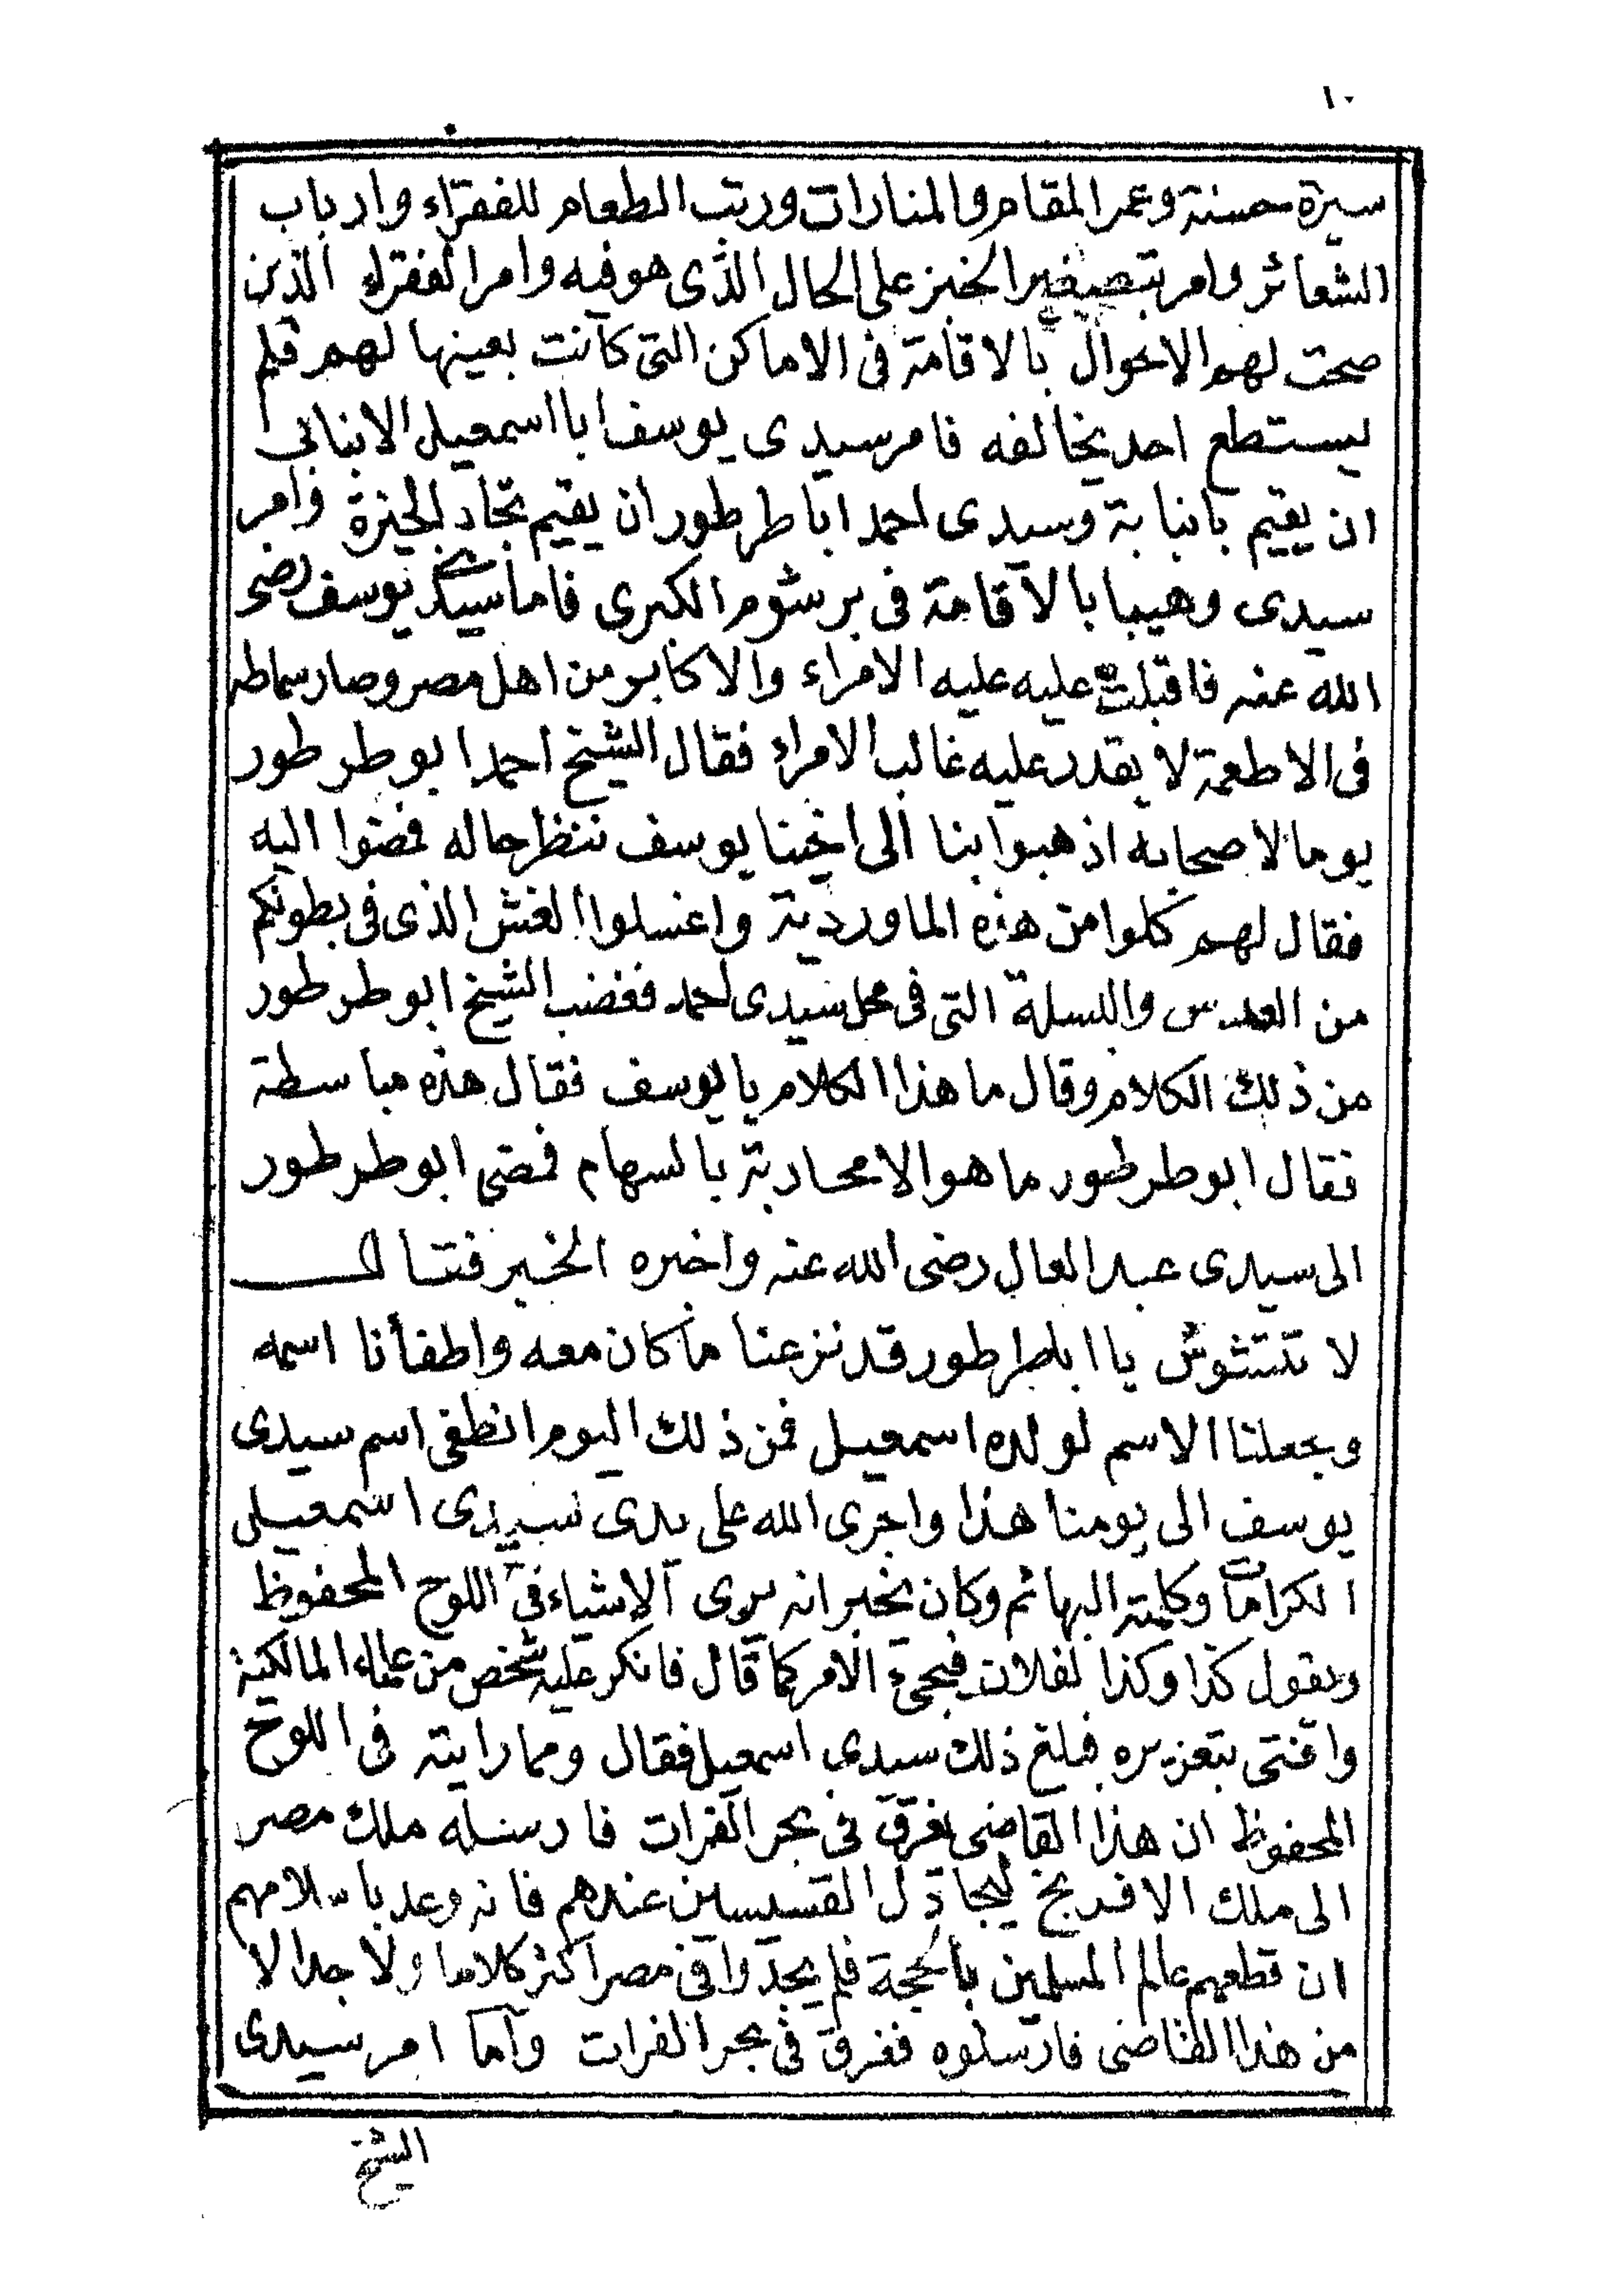 ١٠
سيرة حسنة وعمر المقام والمنارات ورتب الطعام للفقراء وارباب
الشعائر وامر بتصغير الخبز على الحال الذى هو فيه وامر الفقراء الذين
صحت لهم الاحوال بالاقامة فى الاماكن التى كانت بعينها لهم فلم
يستطع احد يخالفه فامر سيدى يوسف ابا اسمعيل الانبابى
ان يقيم بانبابة وسيدى احمد اباطرطور ان يقيم تجاه الجيزة وامر
سيدى وهيبا بالاقامة فى برشوم الكبرى فاما سيدى يوسف رضى
الله عنه فاقبلت عليه عليه الامراء والاكابر من اهل مصر وصار سماطه
فى الاطعمة لا يقدر عليه غالب الامراء فقال الشيخ احمد ابو طرطور
يوما لاصحابه اذهبوا بنا الى اخينا يوسف ننظر حاله فمضوا اليه
فقال لهم كلوا من هذه الماوردية واغسلوا الغش الذى فى بطونكم
من العدس والبسلة التى فى محل سيدى احمد فغضب الشيخ ابو طرطور
من ذلك الكلام وقال ما هذا الكلام يا يوسف فقال هذه مباسطة
فقال ابو طرطور ما هو الا محاربة بالسهام فمضى ابو طرطور
الى سيدى عبد العال رضى الله عنه واخبره الخبر فقال
لا تتشوش يا اباطرطور قد نزعنا ما كان معه واطفأنا اسمه
وجعلنا الاسم لولده اسمعيل فمن ذلك اليوم انطفى اسم سيدى
يوسف الى يومنا هذا واجرى الله على يدى سيدى اسمعيل
الكرامات وكلمته البهائم وكان يخبر انه يرى الاشياء فى اللوح المحفوظ
ويقول كذا وكذا لفلان فيجئ الامر كما قال فانكر عليه شخص من علماء المالكية
وافتى بتعزيره فبلغ ذلك سيدى اسمعيل فقال ومما رايته فى اللوح
المحفوظ ان هذا القاضى يغرق فى بحر الفرات فارسله ملك مصر
الى ملك الافرنج ليجادل القسيسين عندهم فانه وعد باسلامهم
ان قطعهم عالم المسلمين بالحجة فلم يجدوا فى مصر اكثر كلاما ولا جدالا
من هذا القاضى فارسلوه فغرق فى بحر الفرات واما امر سيدى
الشيخ